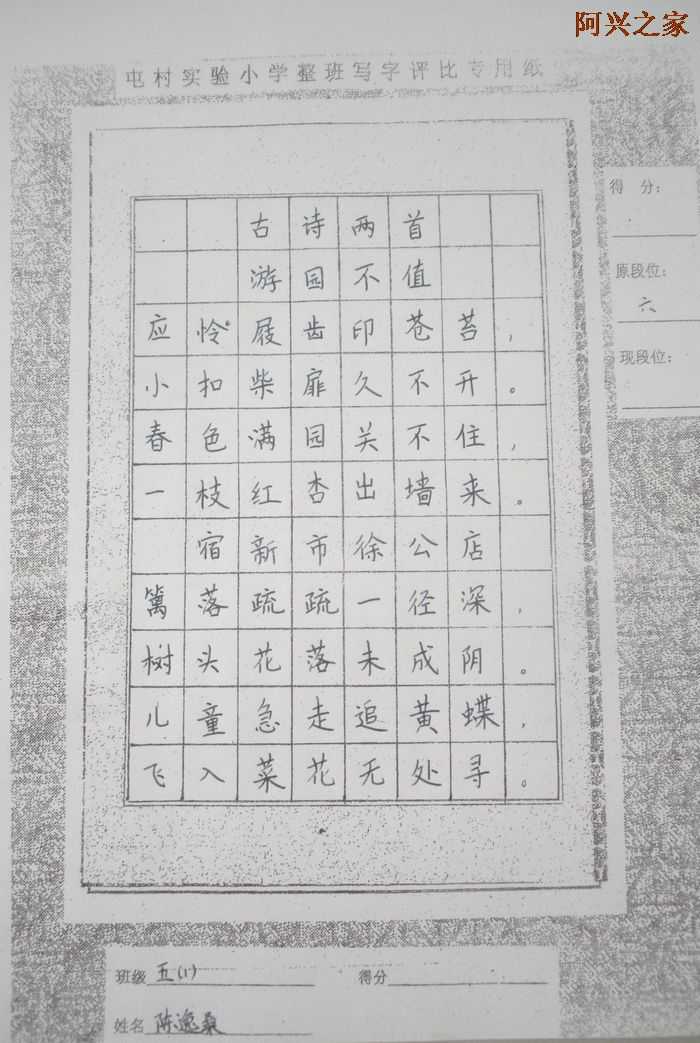 阿兴之家
屯村实验小学整班写字评比专用纸
古诗两首
游园不值
应怜屐齿印苍苔，
小扣柴扉久不开。
春色满园关不住，
一枝红杏出墙来。
宿新市徐公店
篱落疏疏一径深，
树头花落未成阴。
儿童急走追黄蝶，
飞入菜花无处寻。
得 分：
原段位：
六
现段位：
班级 五(1) 得分
姓名 陈逸